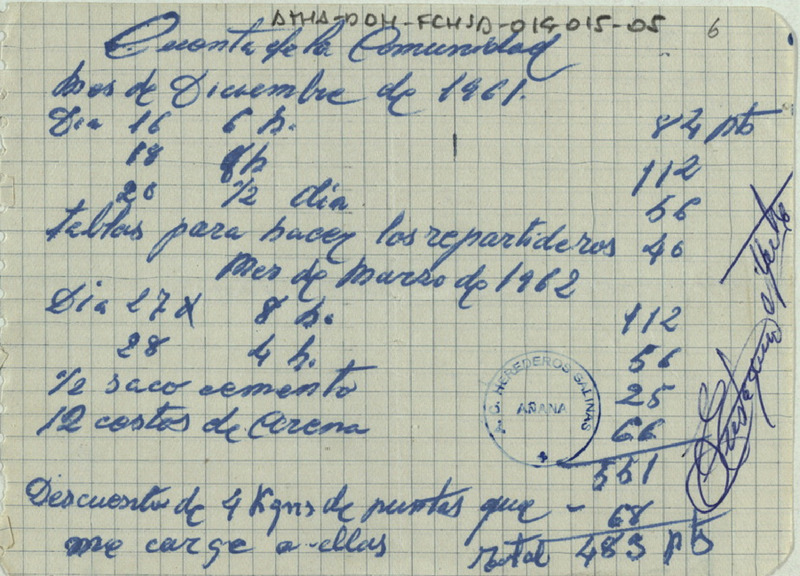 ATHA-DOM-FCHSA-014-015-05 6
Cuenta de la Comunidad
Mes de Diciembre de 1961.
Dia 16 6 h. 84 pts
18 8h 112
20 1/2 dia 56
tablas para hacer los repartideros 40
Mes de Marzo de 1962
Dia 27 x 8 h. 112
28 4 h. 56
1/2 saco cemento 25
12 cestos de Arena 66
551
Descuento de 4 Kgns de puntas que - 68
me carge a ellas Total 483 pts
A. C. HEREDEROS SALINAS
AÑANA